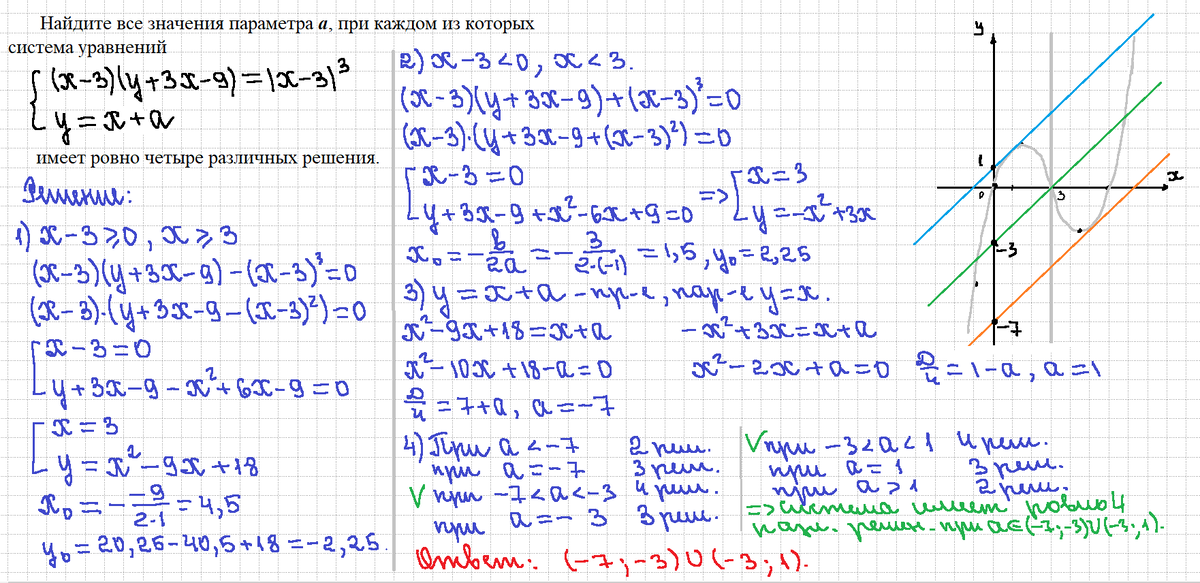 Найдите все значения параметра a, при каждом из которых
система уравнений
{ (x-3)(y+3x-9)=|x-3|³
y=x+a
имеет ровно четыре различных решения.
Решение:
1) x-3⩾0, x⩾3
(x-3)(y+3x-9)-(x-3)³=0
(x-3)·(y+3x-9-(x-3)²)=0
[ x-3=0
y+3x-9-x²+6x-9=0
[ x=3
y=x²-9x+18
x₀=-\frac{-9}{2·1}=4,5
y₀=20,25-40,5+18=-2,25.
2) x-3<0, x<3.
(x-3)(y+3x-9)+(x-3)³=0
(x-3)·(y+3x-9+(x-3)²)=0
[ x-3=0
y+3x-9+x²-6x+9=0
=> [ x=3
y=-x²+3x
x₀=-\frac{b}{2a}=-\frac{3}{2·(-1)}=1,5, y₀=2,25
3) y=x+a-пр-е, пар-е y=x.
x²-9x+18=x+a
x²-10x+18-a=0
\frac{D}{4}=7+a, a=-7
-x²+3x=x+a
x²-2x+a=0 \frac{D}{4}=1-a, a=1
4) При a<-7 2 реш.
при a=-7 3 реш.
V при -7<a<-3 4 реш.
при a=-3 3 реш.
V при -3<a<1 4 реш.
при a=1 3 реш.
при a>1 2 реш.
=> система имеет ровно 4
разл. решен. при a∈(-7;-3)∪(-3;1).
Ответ: (-7;-3)∪(-3;1).
y
x
1
0
3
-3
-7